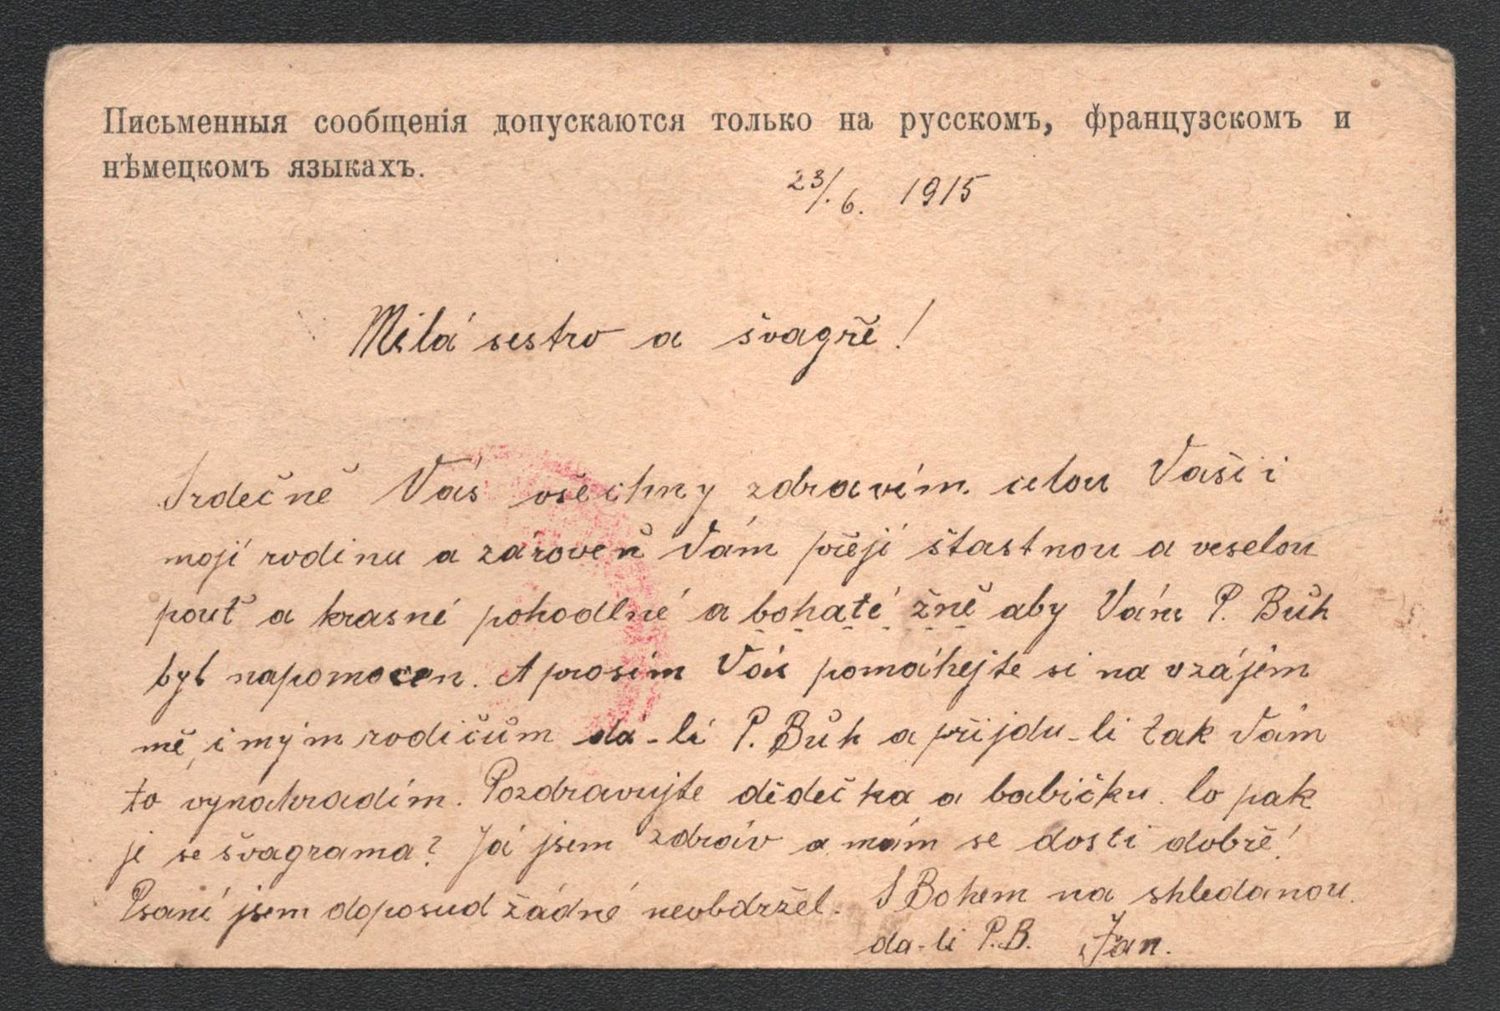 Письменныя сообщенія допускаются только на русскомъ, французскомъ и
нѣмецкомъ языкахъ.
23/6. 1915
Milá sestro a švagře!
Srdečně Vás všechny zdravím celou Vaši i
moji rodinu a zároveň Vám přeji šťastnou a veselou
pouť a krasné pohodlné a bohaté žně aby Vám P. Bůh
byl napomocen. A prosím Vás pomáhejte si na vzájem
mě, i mým rodičům dá-li P. Bůh a přijdu-li tak Vám
to vynahradím. Pozdravujte dědečka a babičku. Co pak
je se švagrama? Já jsem zdráv a mám se dosti dobře!
Psaní jsem doposud žádné neobdržel. S Bohem na shledanou.
da-li P.B. Jan.